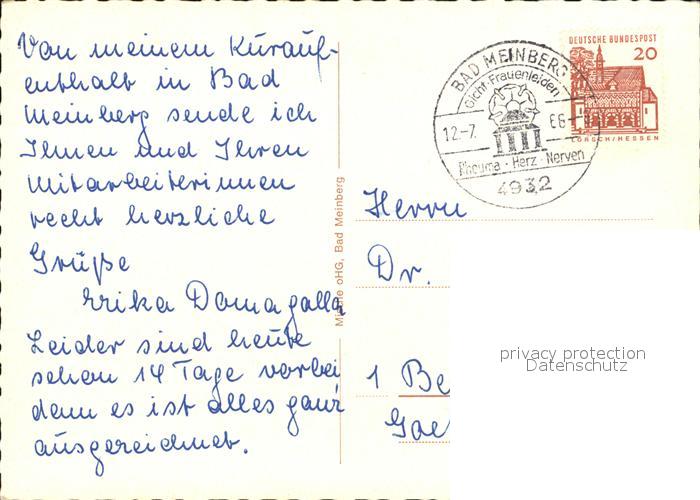 Von meinem Kurauf-
enthalt in Bad
Meinberg sende ich
Ihnen und Ihren
Mitarbeiterinnen
recht herzliche
Grüße
Erika Domagalla
Leider sind heute
schon 14 Tage vorbei
denn es ist alles ganz
ausgezeichnet.
oHG, Bad Meinberg
BAD MEINBERG
Gicht·Frauenleiden
12.-7.
66-
Rheuma · Herz · Nerven
4932
DEUTSCHE BUNDESPOST
20
LORSCH/HESSEN
Herrn
Dr.
1 Be
Goe
privacy protection
Datenschutz